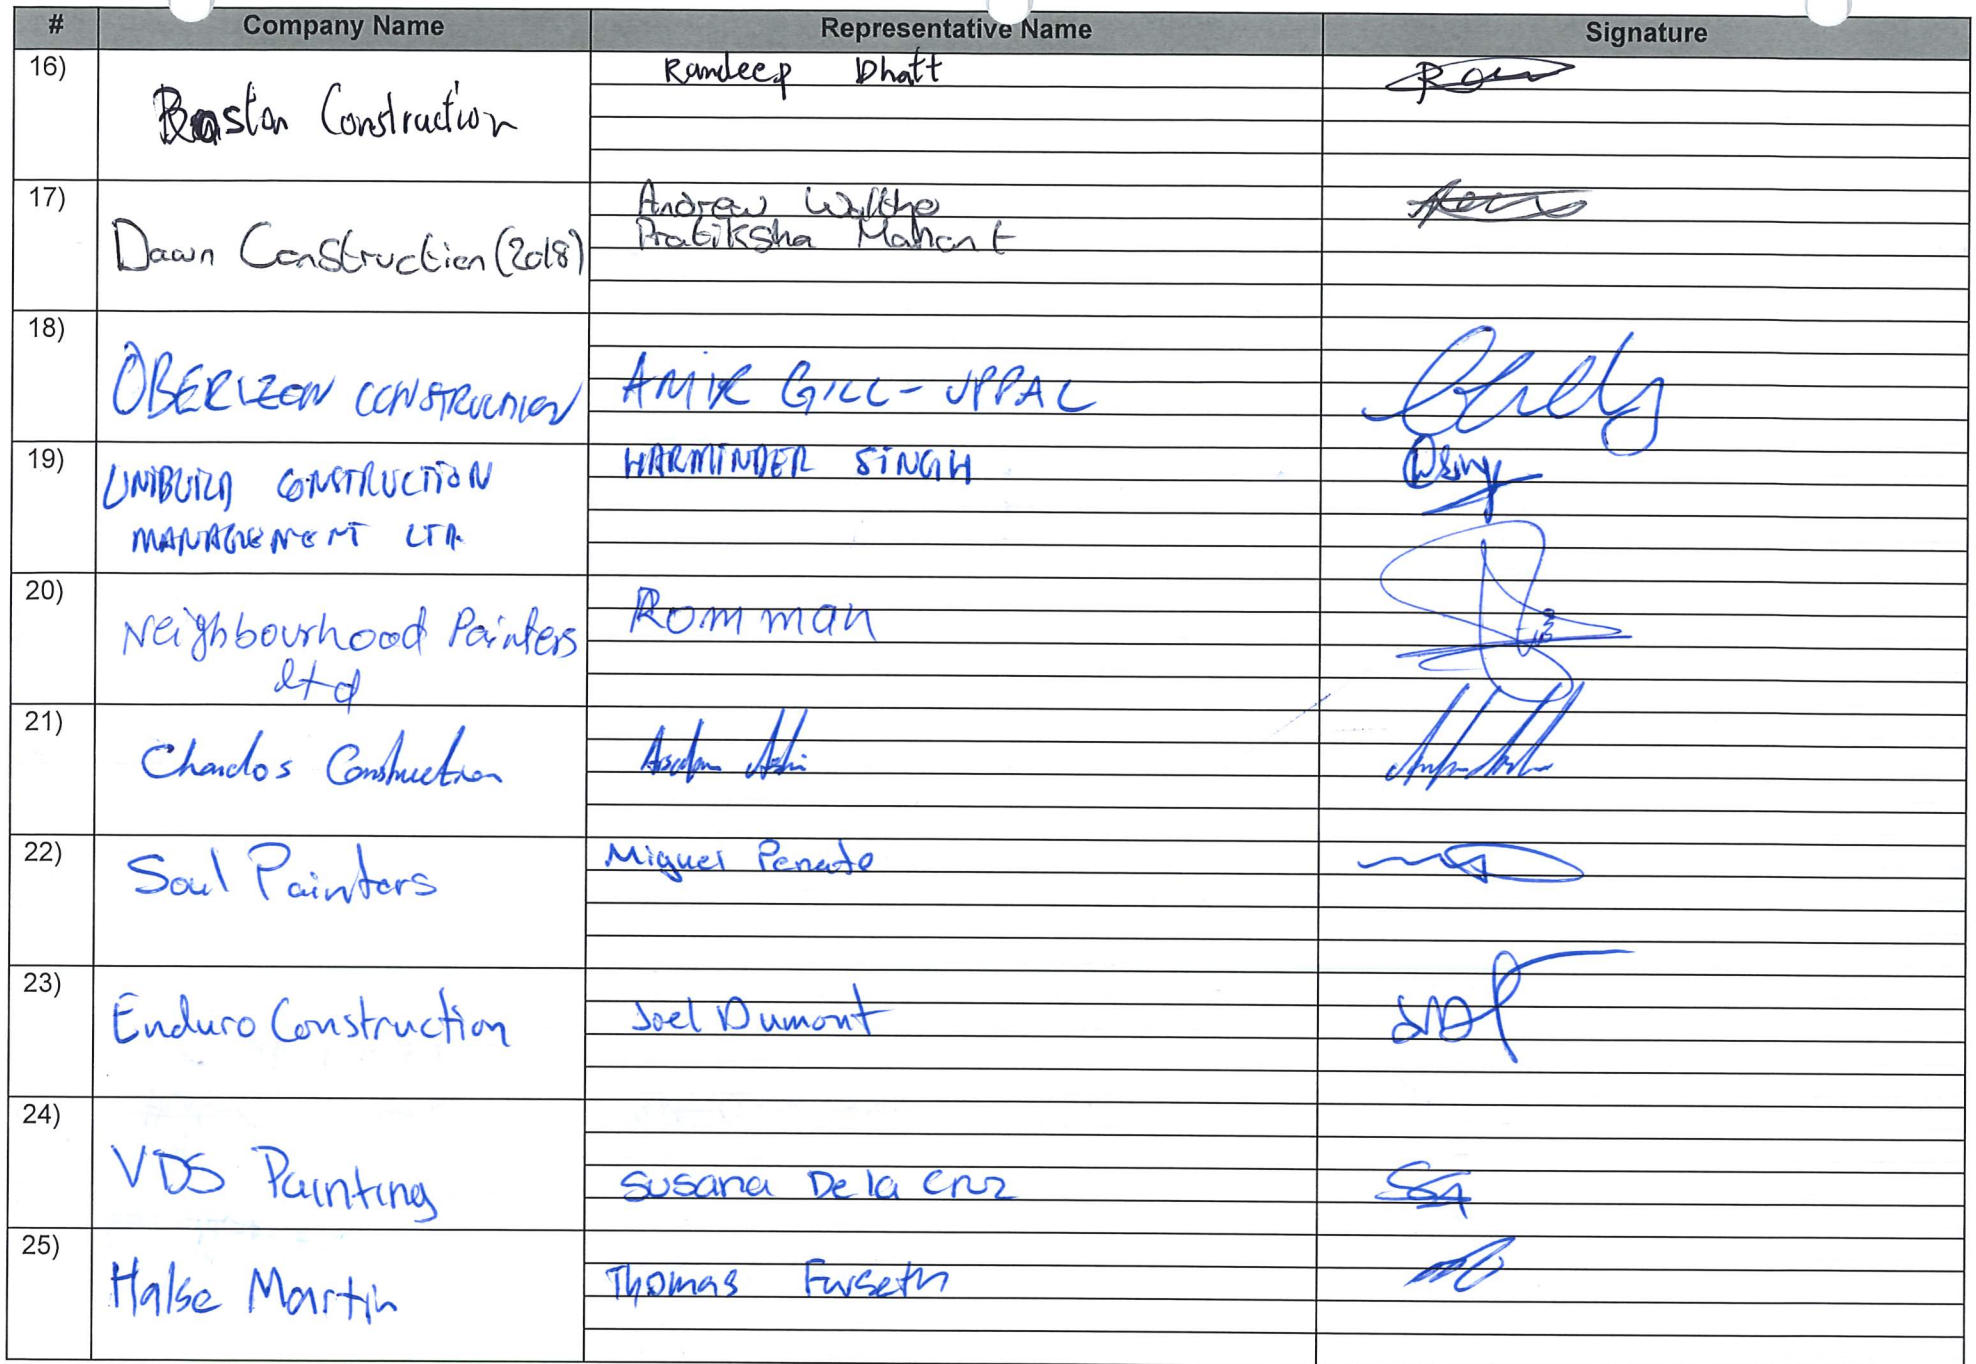 # Company Name Representative Name Signature
16) Ramdeep Dhatt
Construction
17) Andrew
Dawn Construction (2018) Pratiksha Mahant
18)
OBERIZON CONSTRUCTION AMIR GILL-UPPAL
19) UNIBUILD CONSTRUCTION HARMINDER SINGH
MANAGEMENT LTD.
20) Neighbourhood Painters Romman
ltd
21)
Chandos Construction
22) Soul Painters Miguel Penate
23)
Enduro Construction Joel Dumont
24)
VDS Painting Susana De la Cruz
25)
Halse Martin Thomas Forseth